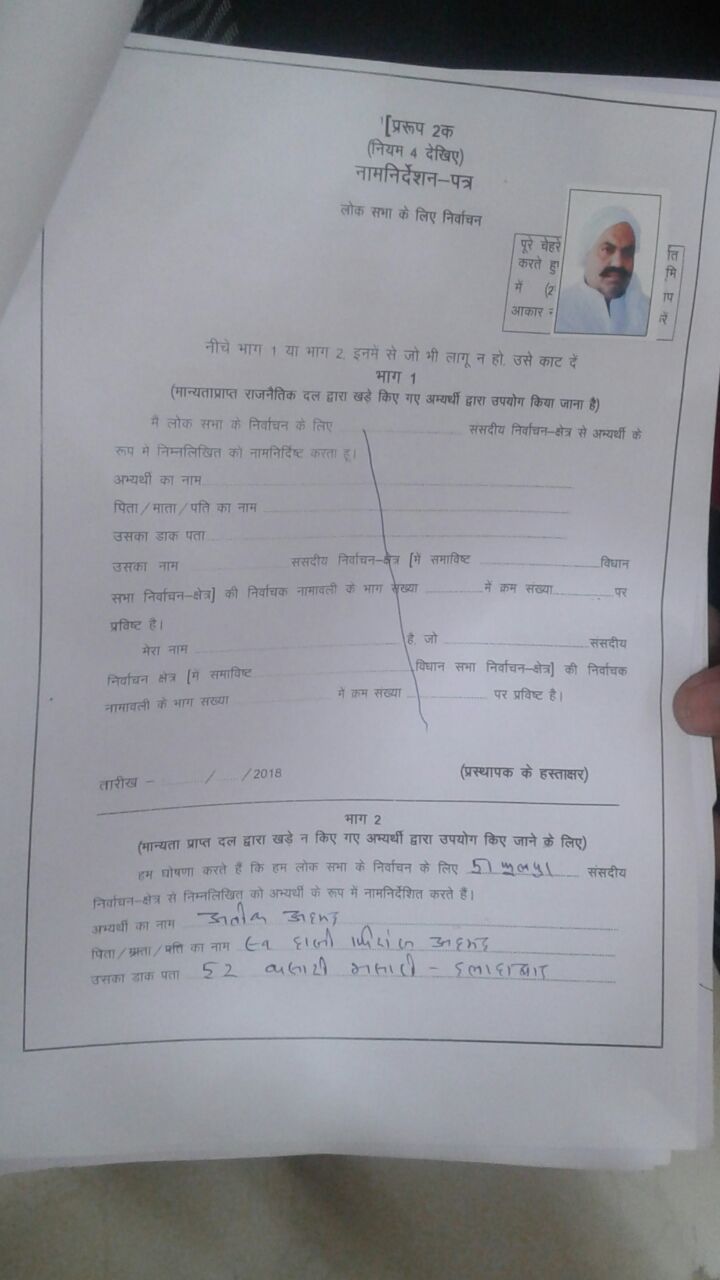 '[प्ररूप 2क
(नियम 4 देखिए)
नामनिर्देशन-पत्र
लोक सभा के लिए निर्वाचन
पूरे चेहरे
करते हु
में (2
आकार
ति
मि
ाप
रें
नीचे भाग 1 या भाग 2, इनमें से जो भी लागू न हो, उसे काट दें
भाग 1
(मान्यताप्राप्त राजनैतिक दल द्वारा खड़े किए गए अभ्यर्थी द्वारा उपयोग किया जाना है)
मैं लोक सभा के निर्वाचन के लिए संसदीय निर्वाचन-क्षेत्र से अभ्यर्थी के
रूप में निम्नलिखित को नामनिर्दिष्ट करता हू।
अभ्यर्थी का नाम
पिता/माता/पति का नाम
उसका डाक पता
उसका नाम संसदीय निर्वाचन-क्षेत्र [में समाविष्ट विधान
सभा निर्वाचन-क्षेत्र] की निर्वाचक नामावली के भाग संख्या में क्रम संख्या पर
प्रविष्ट है।
मेरा नाम है, जो संसदीय
निर्वाचन क्षेत्र [में समाविष्ट विधान सभा निर्वाचन-क्षेत्र] की निर्वाचक
नामावली के भाग संख्या में क्रम संख्या पर प्रविष्ट है।
तारीख - / /2018 (प्रस्थापक के हस्ताक्षर)
भाग 2
(मान्यता प्राप्त दल द्वारा खड़े न किए गए अभ्यर्थी द्वारा उपयोग किए जाने के लिए)
हम घोषणा करते हैं कि हम लोक सभा के निर्वाचन के लिए 51 फूलपुर संसदीय
निर्वाचन-क्षेत्र से निम्नलिखित को अभ्यर्थी के रूप में नामनिर्देशित करते हैं।
अभ्यर्थी का नाम अतीक अहमद
पिता/माता/पति का नाम स्व हाजी फिरोज अहमद
उसका डाक पता 52 - इलाहाबाद